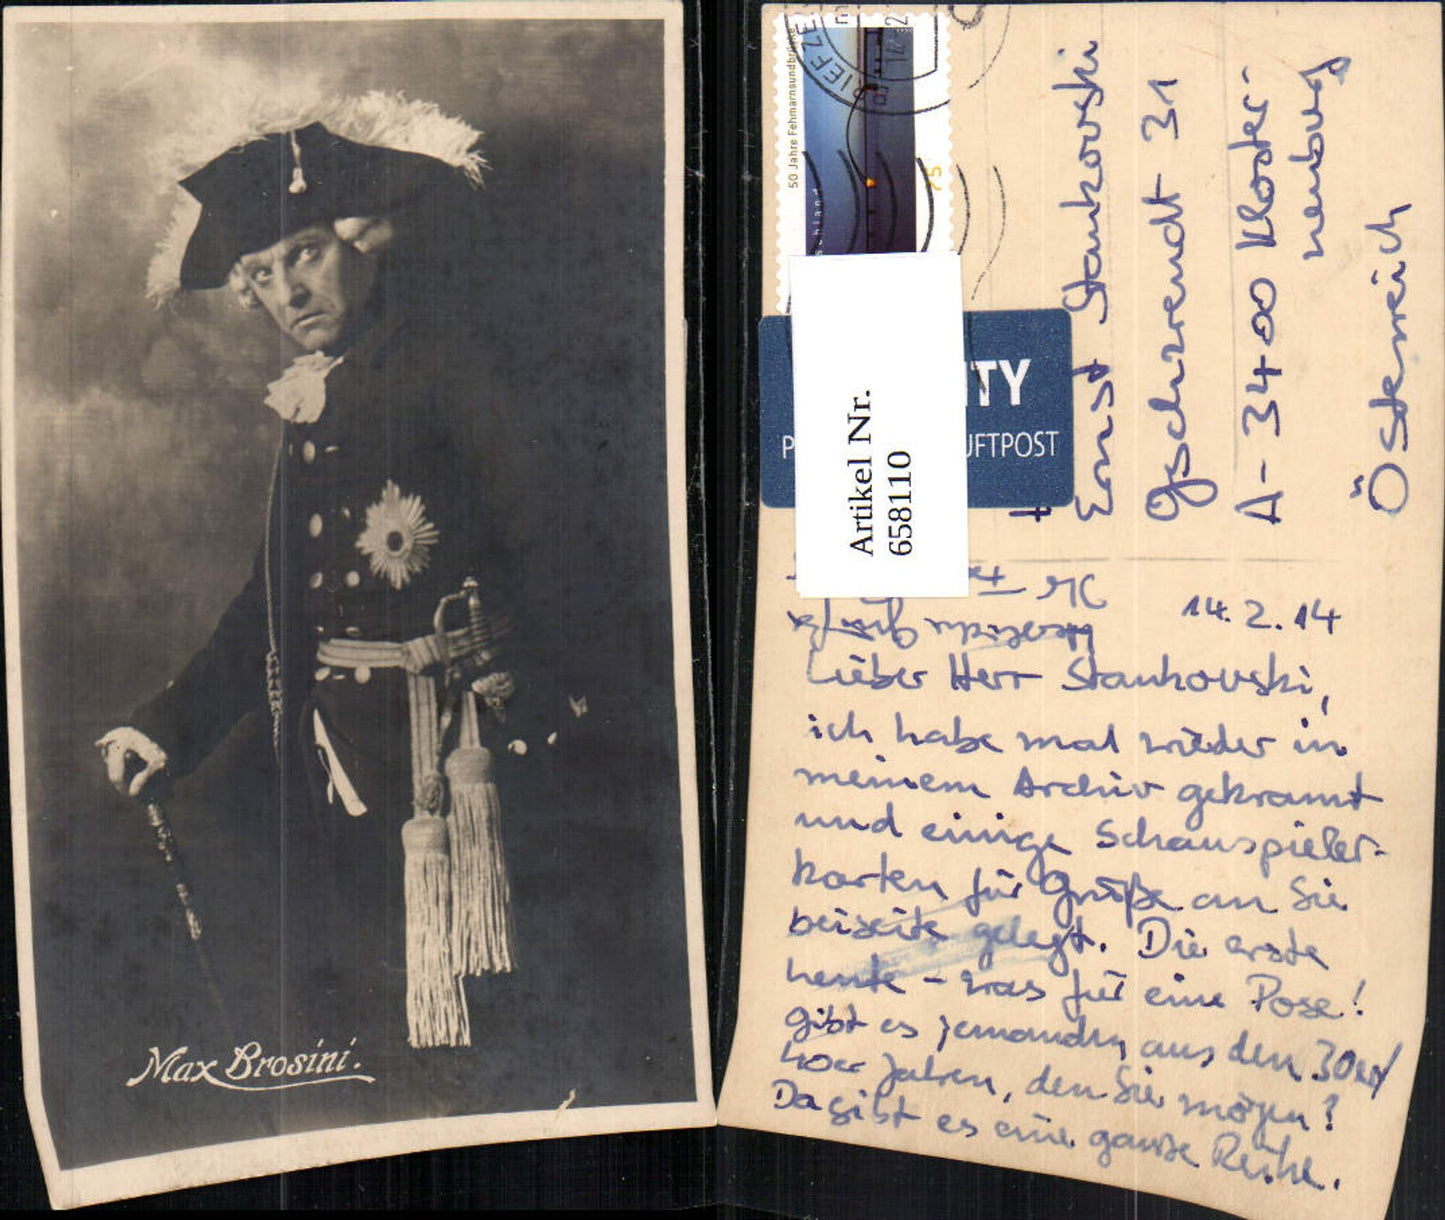 Max Brosini.
50 Jahre Fehmarnsundbrücke
75
BRIEFZE
ITY
P UFTPOST
Artikel Nr.
658110
Ernst Stankovski
Gschwendt 31
A-3400 Kloster-
neuburg
Österreich
14.2.14
Herzliche Grüße
Lieber Herr Stankovski,
ich habe mal wieder in
meinem Archiv gekramt
und einige Schauspieler-
karten für Grüße an Sie
beiseite gelegt. Die erste
heute - was für eine Pose!
Gibt es jemanden aus den 30er/
40er Jahren, den Sie mögen?
Da gibt es eine ganze Reihe.